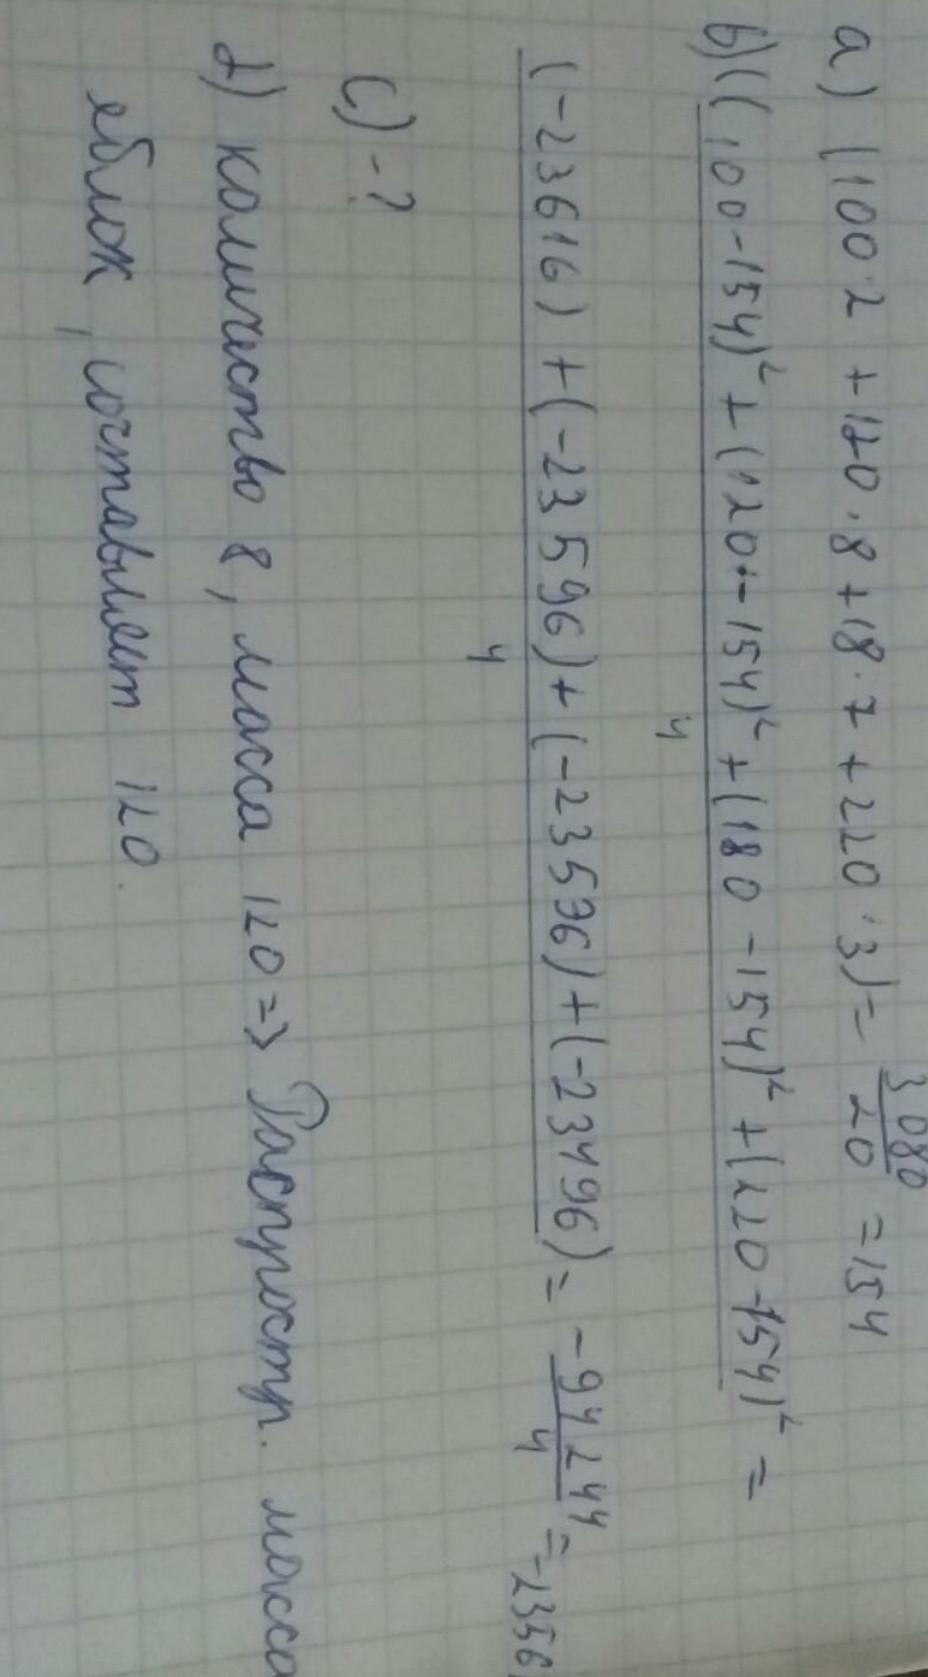 a) (100·2 + 120·8 + 18·7 + 220·3) = 3080/20 = 154
b) ((100-154)² + (120-154)² + (180-154)² + (220-154)² =
4
(-23616) + (-23596) + (-23536) + (-23496) = -94244/4 = -2356
4
c) -?
d) количество 8, масса 120 => Распростр. масса
яблок, составляет 120.